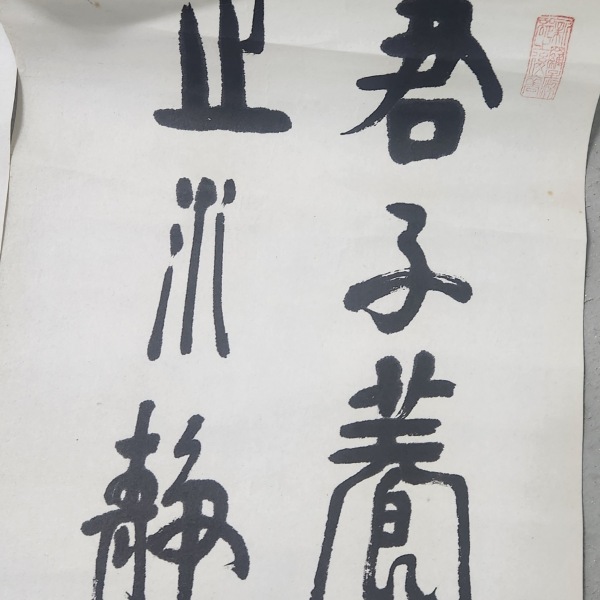 君子養
止水静